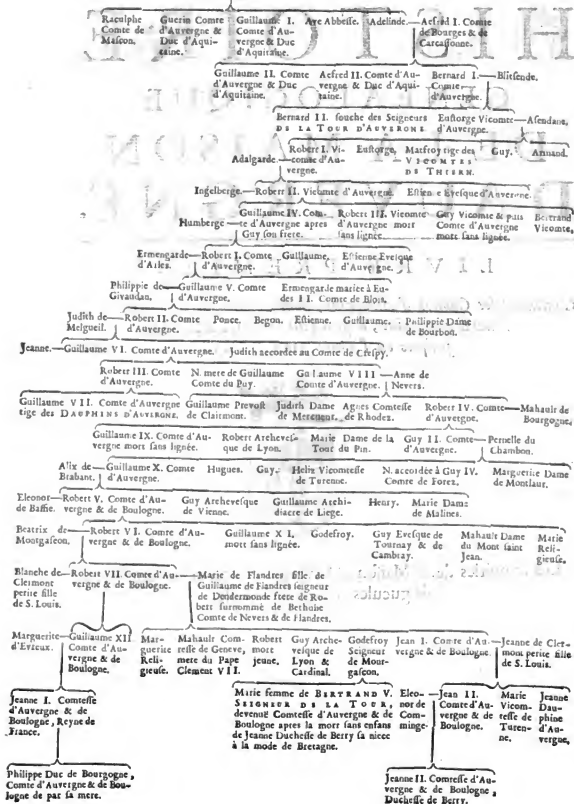 Raculphe Comte de Mascon.
Guerin Comte d'Auvergne & Duc d'Aquitaine.
Guillaume I. Comte d'Auvergne & Duc d'Aquitaine.
Ave Abbesse.
Adelinde.—Acfred I. Comte de Bourges & de Carcassonne.
Guillaume II. Comte d'Auvergne & Duc d'Aquitaine.
Acfred II. Comte d'Auvergne & Duc d'Aquitaine.
Bernard I.—Blitsende.
Comte d'Auvergne.
Bernard II. souche des Seigneurs DE LA TOUR D'AUVERGNE
Eustorge Vicomte—Asendane.
d'Auvergne.
Robert I. Vicomte d'Auvergne.
Adalgarde.
Eustorge,
Matfroy tige des VICOMTES DE THIERN.
Guy.
Armand.
Ingelberge.—Robert II. Vicomte d'Auvergne.
Estienne Evesque d'Auvergne.
Humberge—Guillaume IV. Comte d'Auvergne apres Guy son frere.
Robert III. Vicomte d'Auvergne mort sans lignée.
Guy Vicomte & puis Comte d'Auvergne mort sans lignée.
Bertrand Vicomte,
Ermengarde—Robert I. Comte
d'Arles. d'Auvergne.
Guillaume,
Estienne Evesque d'Auvergne.
Philippie de—Guillaume V. Comte
Givaudan, d'Auvergne.
Ermengarde mariée à Eudes II. Comte de Blois.
Judith de—Robert II. Comte
Melgueil. d'Auvergne.
Ponce.
Begon.
Estienne.
Guillaume.
Philippie Dame de Bourbon.
Jeanne.—Guillaume VI. Comte d'Auvergne.
Judith accordée au Comte de Crespy.
Robert III. Comte d'Auvergne.
N. mere de Guillaume Comte du Puy.
Guillaume VIII—Anne de
Comte d'Auvergne. Nevers.
Guillaume VII. Comte d'Auvergne tige des DAUPHINS D'AUVERGNE.
Guillaume Prevost de Clairmont.
Judith Dame de Mercueur.
Agnes Comtesse de Rhodez.
Robert IV. Comte—Mahault de
d'Auvergne. Bourgogne.
Guillaume IX. Comte d'Auvergne mort sans lignée.
Robert Archevesque de Lyon.
Marie Dame de la Tour du Pin.
Guy II. Comte—Pernelle du
d'Auvergne. Chambon.
Alix de—Guillaume X. Comte
Brabant. d'Auvergne.
Hugues.
Guy.
Helix Vicomtesse de Turenne.
N. accordée à Guy IV. Comte de Forez.
Marguerite Dame de Montlaur.
Eleonor—Robert V. Comte d'Au-
de Baffie. vergne & de Boulogne.
Guy Archevesque de Vienne.
Guillaume Archidiacre de Liege.
Henry.
Marie Dame de Malines.
Beatrix de—Robert VI. Comte d'Au-
Montgascon. vergne & de Boulogne.
Guillaume XI, mort sans lignée.
Godefroy.
Guy Evesque de Tournay & de Cambray.
Mahault Dame du Mont saint Jean.
Marie Religieuse.
Blanche de—Robert VII. Comte d'Au-—Marie de Flandres fille de
Clermont vergne & de Boulogne. Guillaume de Flandres seigneur
petite fille de Dendermonde frere de Ro-
de S. Louis. bert surnommé de Bethune
Comte de Nevers & de Flandres.
Marguerite—Guillaume XII
d'Evreux. Comte d'Auvergne & de Boulogne.
Marguerite Religieuse.
Mahault Comtesse de Geneve, mere du Pape Clement VII.
Robert mort jeune.
Guy Archevesque de Lyon & Cardinal.
Godefroy Seigneur de Mourgascon,
Jean I. Comte d'Au-—Jeanne de Cler-
vergne & de Boulogne. mont petite fille
de S. Louis.
Jeanne I. Comtesse d'Auvergne & de Boulogne, Reyne de France.
Marie femme de BERTRAND V. SEIGNEUR DE LA TOUR, devenuë Comtesse d'Auvergne & de Boulogne apres la mort sans enfans de Jeanne Duchesse de Berry sa niece à la mode de Bretagne.
Eleonor de Comminge—Jean II. Comte d'Auvergne & de Boulogne.
Marie Vicomtesse de Turenne.
Jeanne Dauphine d'Auvergne,
Philippe Duc de Bourgogne, Comte d'Auvergne & de Boulogne de par sa mere.
Jeanne II. Comtesse d'Auvergne & de Boulogne, Duchesse de Berry.